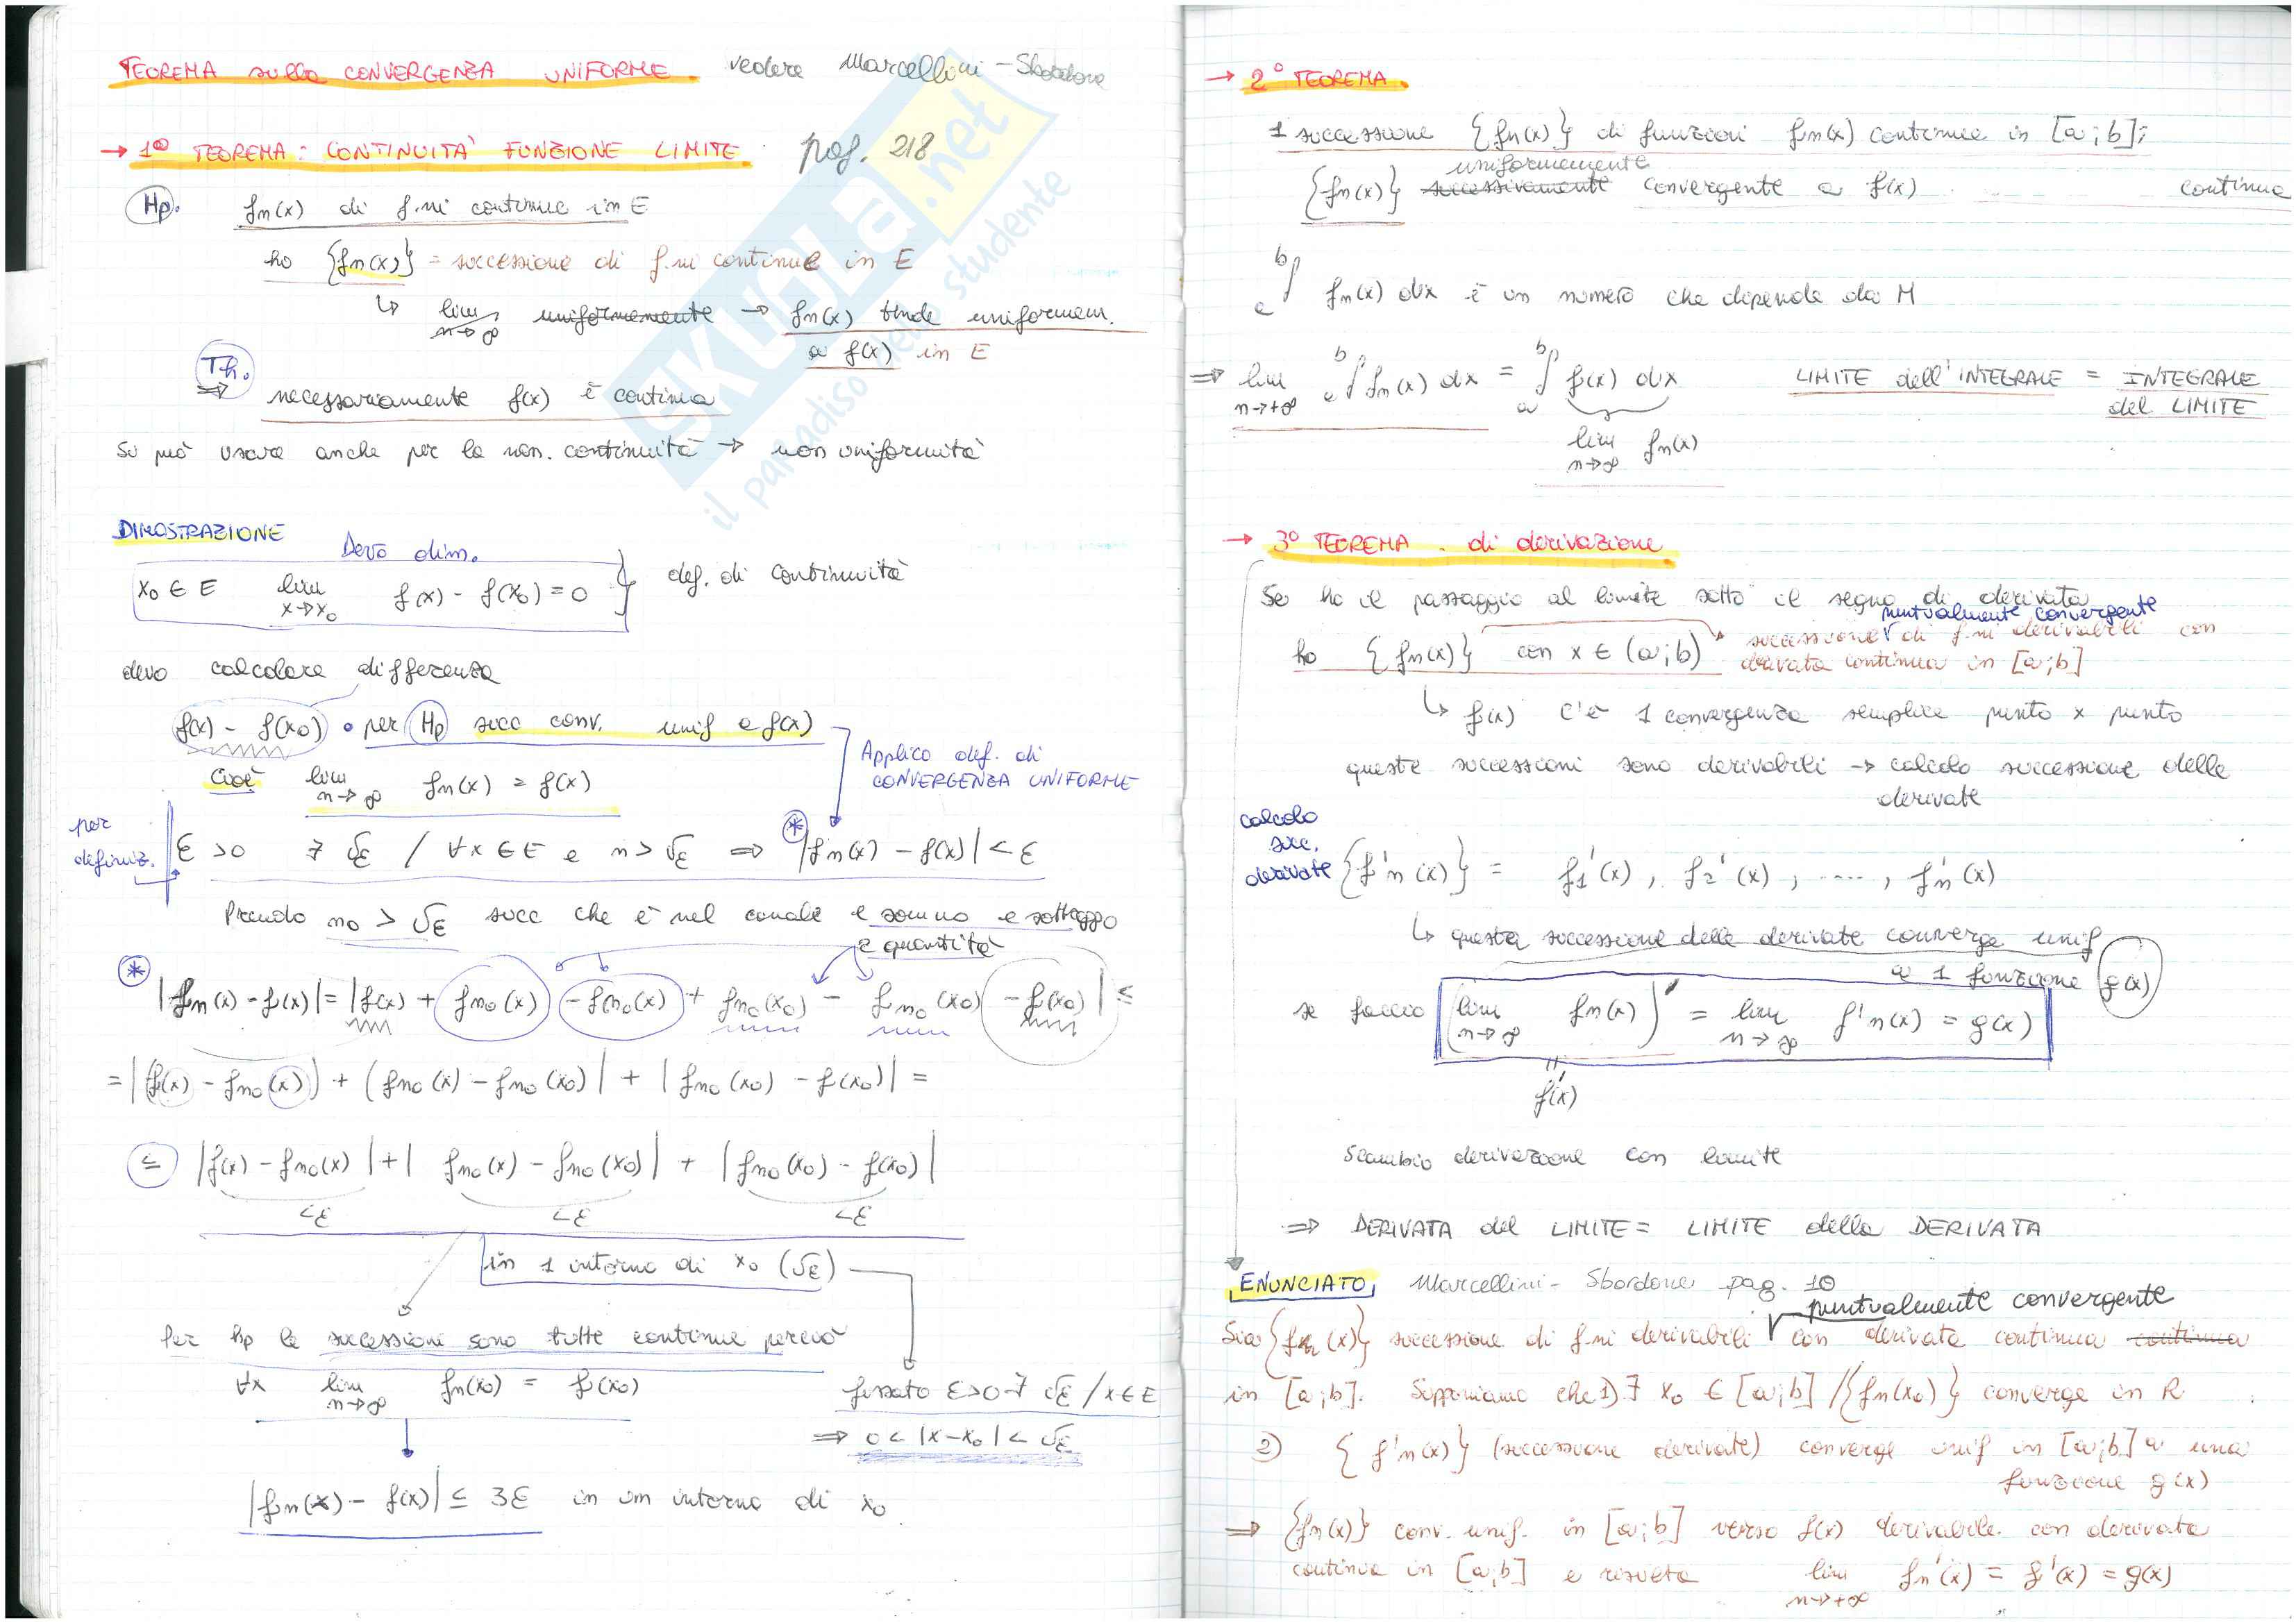 TEOREMA sulla CONVERGENZA UNIFORME. vedere Marcellini - Sbordone
→ 1º TEOREMA: CONTINUITA' FUNZIONE LIMITE pag. 218
Hp. fn(x) di f.ni continue in E
ho {fn(x)} = successione di f.ni continue in E
↳ lim n→∞ uniformemente → fn(x) tende uniformem.
a f(x) in E
Th.
⇒ necessariamente f(x) è continua
Si può usare anche per la non. continuità → non uniformità
DIMOSTRAZIONE
Devo dim.
x0 ∈ E lim x→x0 f(x) - f(x0) = 0 } def. di continuità
devo calcolare differenza
f(x) - f(x0) • per Hp succ conv. unif a f(x)
Applico def. di
CONVERGENZA UNIFORME
cioè lim n→∞ fn(x) = f(x)
per
definiz.
ε > 0 ∃ νε / ∀x ∈ E e n > νε ⇒ * |fn(x) - f(x)| < ε
Prendo n0 > νε succ che è nel canale e sommo e sottraggo
2 quantità
* |fn(x) - f(x)| = |f(x) + fn0(x) - fn0(x) + fn0(x0) - fn0(x0) - f(x0)| ≤
= |f(x) - fn0(x)) + (fn0(x) - fn0(x0)| + |fn0(x0) - f(x0)| =
≤ |f(x) - fn0(x)| + | fn0(x) - fn0(x0)| + |fn0(x0) - f(x0)|
<ε <ε <ε
in 1 intorno di x0 (νε)
Per hp le successioni sono tutte continue perciò
∀x lim n→∞ fn(x0) = f(x0)
fissato ε>0 ∃ νε / x∈E
⇒ 0 < |x-x0| < νε
|fn(x) - f(x)| ≤ 3ε in un intorno di x0
→ 2º TEOREMA.
1 successione {fn(x)} di funzioni fn(x) continue in [a;b];
uniformemente
{fn(x)} successivamente convergente a f(x) continua
a∫b fn(x) dx è un numero che dipende da M
⇒ lim n→+∞ a∫b fn(x) dx = a∫b f(x) dx LIMITE dell'INTEGRALE = INTEGRALE
del LIMITE
lim n→∞ fn(x)
→ 3º TEOREMA. di derivazione
Se ho il passaggio al limite sotto il segno di derivata
puntualmente convergente
ho {fn(x)} con x ∈ (a;b) successione √ di f.ni derivabili con
derivata continua in [a;b]
↳ f(x) c'è 1 convergenza semplice punto x punto
queste successioni sono derivabili → calcolo successione delle
derivate
calcolo
succ.
derivate {f'n(x)} = f1'(x), f2'(x), ...., fn'(x)
↳ questa successione delle derivate converge unif
a 1 funzione g(x)
se faccio (lim n→∞ fn(x))' = lim n→∞ f'n(x) = g(x)
f'(x)
Scambio derivazione con limite
⇒ DERIVATA del LIMITE = LIMITE della DERIVATA
ENUNCIATO Marcellini - Sbordone pag. 10
puntualmente convergente
Sia {fn(x)} successione di f.ni derivabili √ con derivata continua continua
in [a;b]. Supponiamo che 1) ∃ x0 ∈ [a;b] / {fn(x0)} converge in R.
2) {f'n(x)} (successione derivate) converge unif in [a;b] a una
funzione g(x)
⇒ {fn(x)} conv. unif. in [a;b] verso f(x) derivabile con derivata
continua in [a;b] e risulta lim n→+∞ fn'(x) = f'(x) = g(x)
SKUOLA.net
il paradiso dello studente